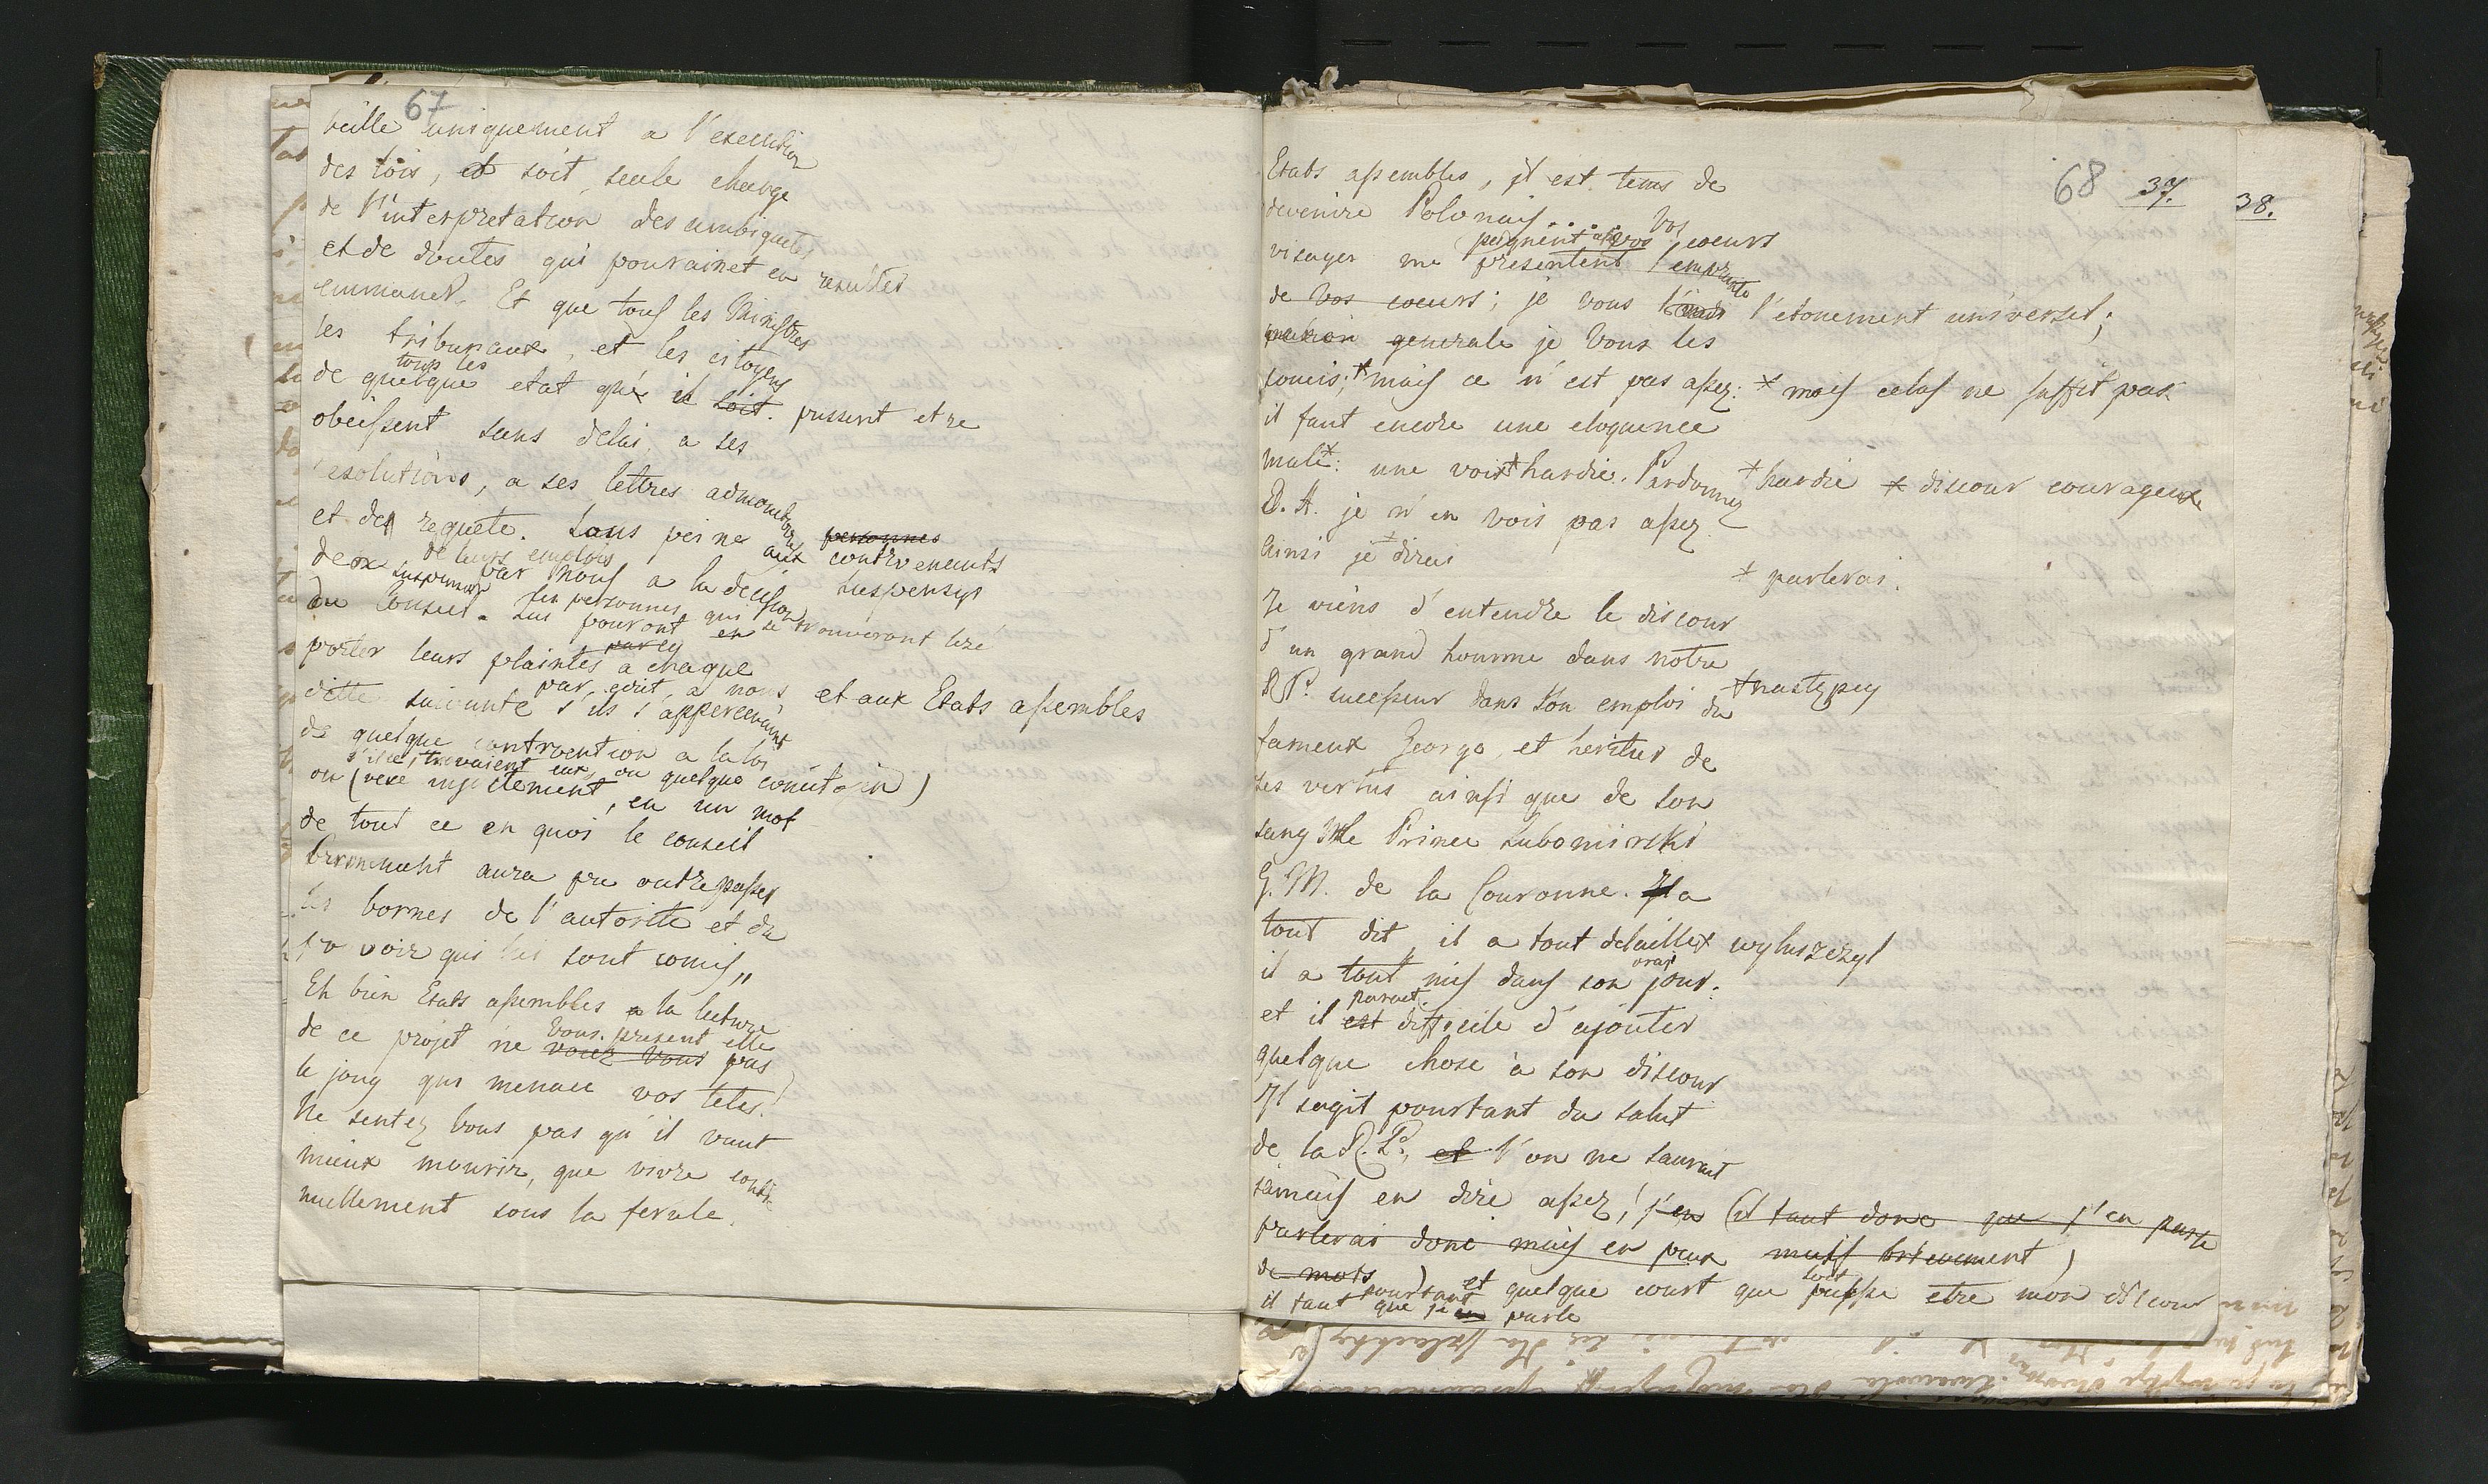 67
veille uniquement a l'execution
des lois, et soit seule chargé
de l'interpretation des ambiguetes
et de doutes qui pouraint en resulter
emmaner. Et que tous les Ministres
les tribunaux, et les citoyens
tous les
de quelque etat que il soit. pussent etre
obeissent sans delai, a ses
resolutions, a ses lettres admonitoires
et des requete. sous peine aux personnes
contrevenants
de leurs emplois
de suspension par nous a la decision suspensys
du Conseil. Les personnes qui se trouveront lezé
pouront en
porter leurs plaintes a chaque
par ecrit, a nous et aux Etats assembles
diette suivante s'ils s'appercevoint
de quelque contravention a la loi
s'il se trouvaient eux, ou quelque concitoien)
ou (vexe injustement, en un mot
de tout ce en quoi le conseil
Permenent aura pu outrepasser
les bornes de l'autorite et du
pouvoir qui lui sont comis,,
Eh bien Etats assembles a la lecture
Vous present elle
de ce projet ne voiez vous pas
le joug qui menace vos tetes.
Ne sentez vous pas qu'il vaut
mieux mourir, que vivre conti-
nuellement sous la ferule.
68 37. 38.
Etats assembles, il est tems de
devenire Polonais.... Vos
peignent assez vos coeurs
visages me presentent l'emprunte
de vos coeurs; je vous l'etonement universel;
generale je vous les
soucis;* mais ce n'est pas assez: * mais celas ne suffit pas
il faut encore une eloquence
male*: une voix* hardie. Pardonnez * hardie * discour courageux
E. A. je n'en vois pas assez.
Ainsi je * dirai
* parlerai.
Je viens d'entendre le discour
d'un grand homme dans notre
R P. sucesseur dans son emploi du * następcy
fameux George, et heritier de
ses vertus ainsi que de son
sang Mle Prince Lubomirski
G. M. de la Couronne. Il a
tout dit, il a tout detaille* wyłuszczył
vrai
il a tout mis dans son jour.
parait
et il est difficile d'ajouter
quelque chose à son discour
Il sagit pourtant du salut
de la R. P. et l'on ne saurait
jamais en dire assez! j'en (il faut donc que j'en parle
parlerai donc mais en peux mais brievement)
de mots) pourtant et quelque court que soit puisse etre mon discour
il faut que je en parle